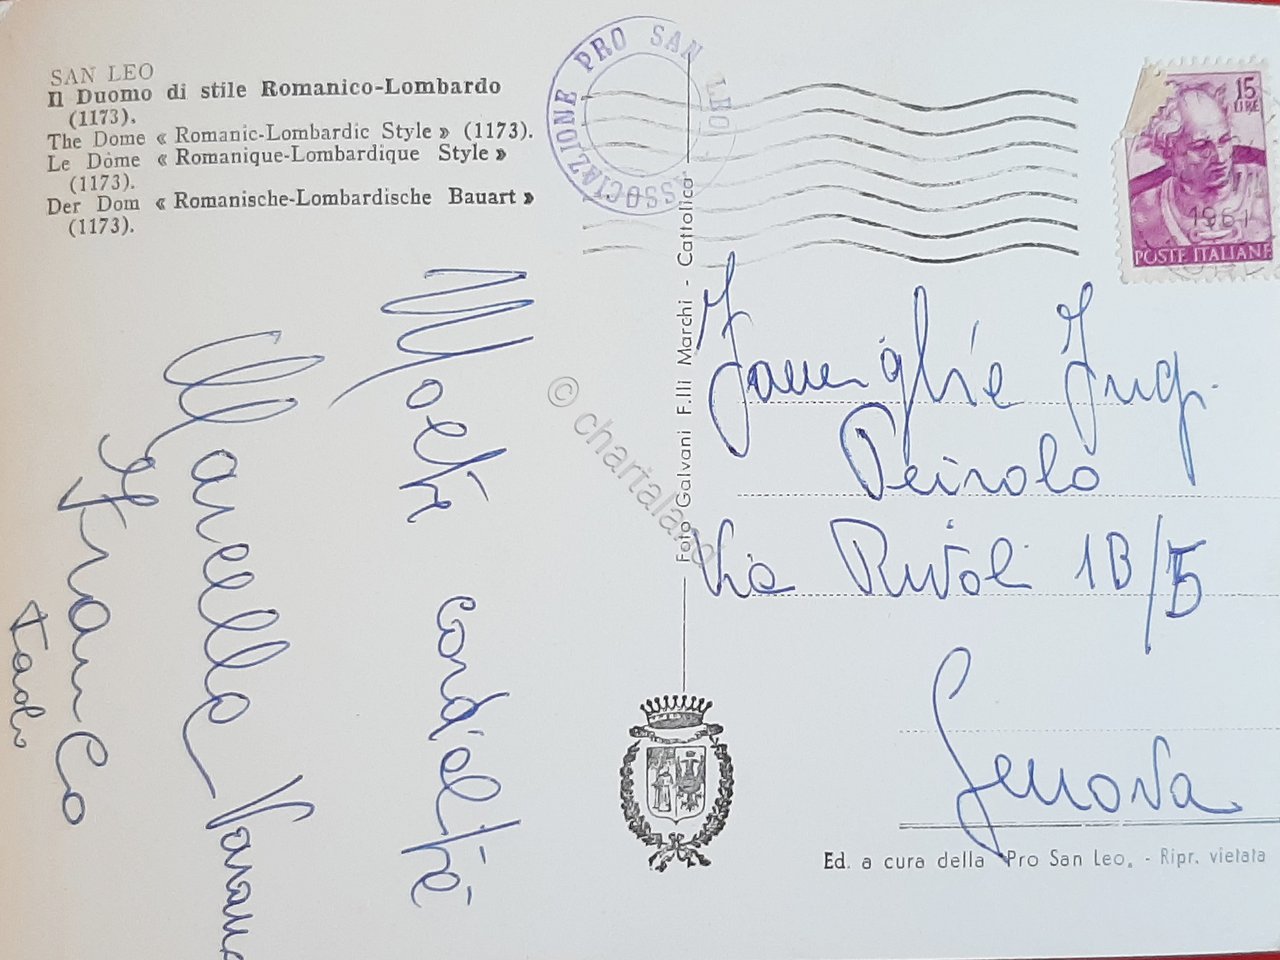 SAN LEO
Il Duomo di stile Romanico-Lombardo
(1173).
The Dome « Romanic-Lombardic Style » (1173).
Le Dôme « Romanique-Lombardique Style »
(1173).
Der Dom « Romanische-Lombardische Bauart »
(1173).
ASSOCIAZIONE PRO SAN LEO
15
LIRE
1961
POSTE ITALIANE
Molte cordialità
Marcella
Franco
Paolo
Foto Galvani F.lli Marchi - Cattolica
Famiglie Ing.
Peirolo
Via Rivoli 1B/5
Genova
Ed. a cura della "Pro San Leo" - Ripr. vietata
© chartaland